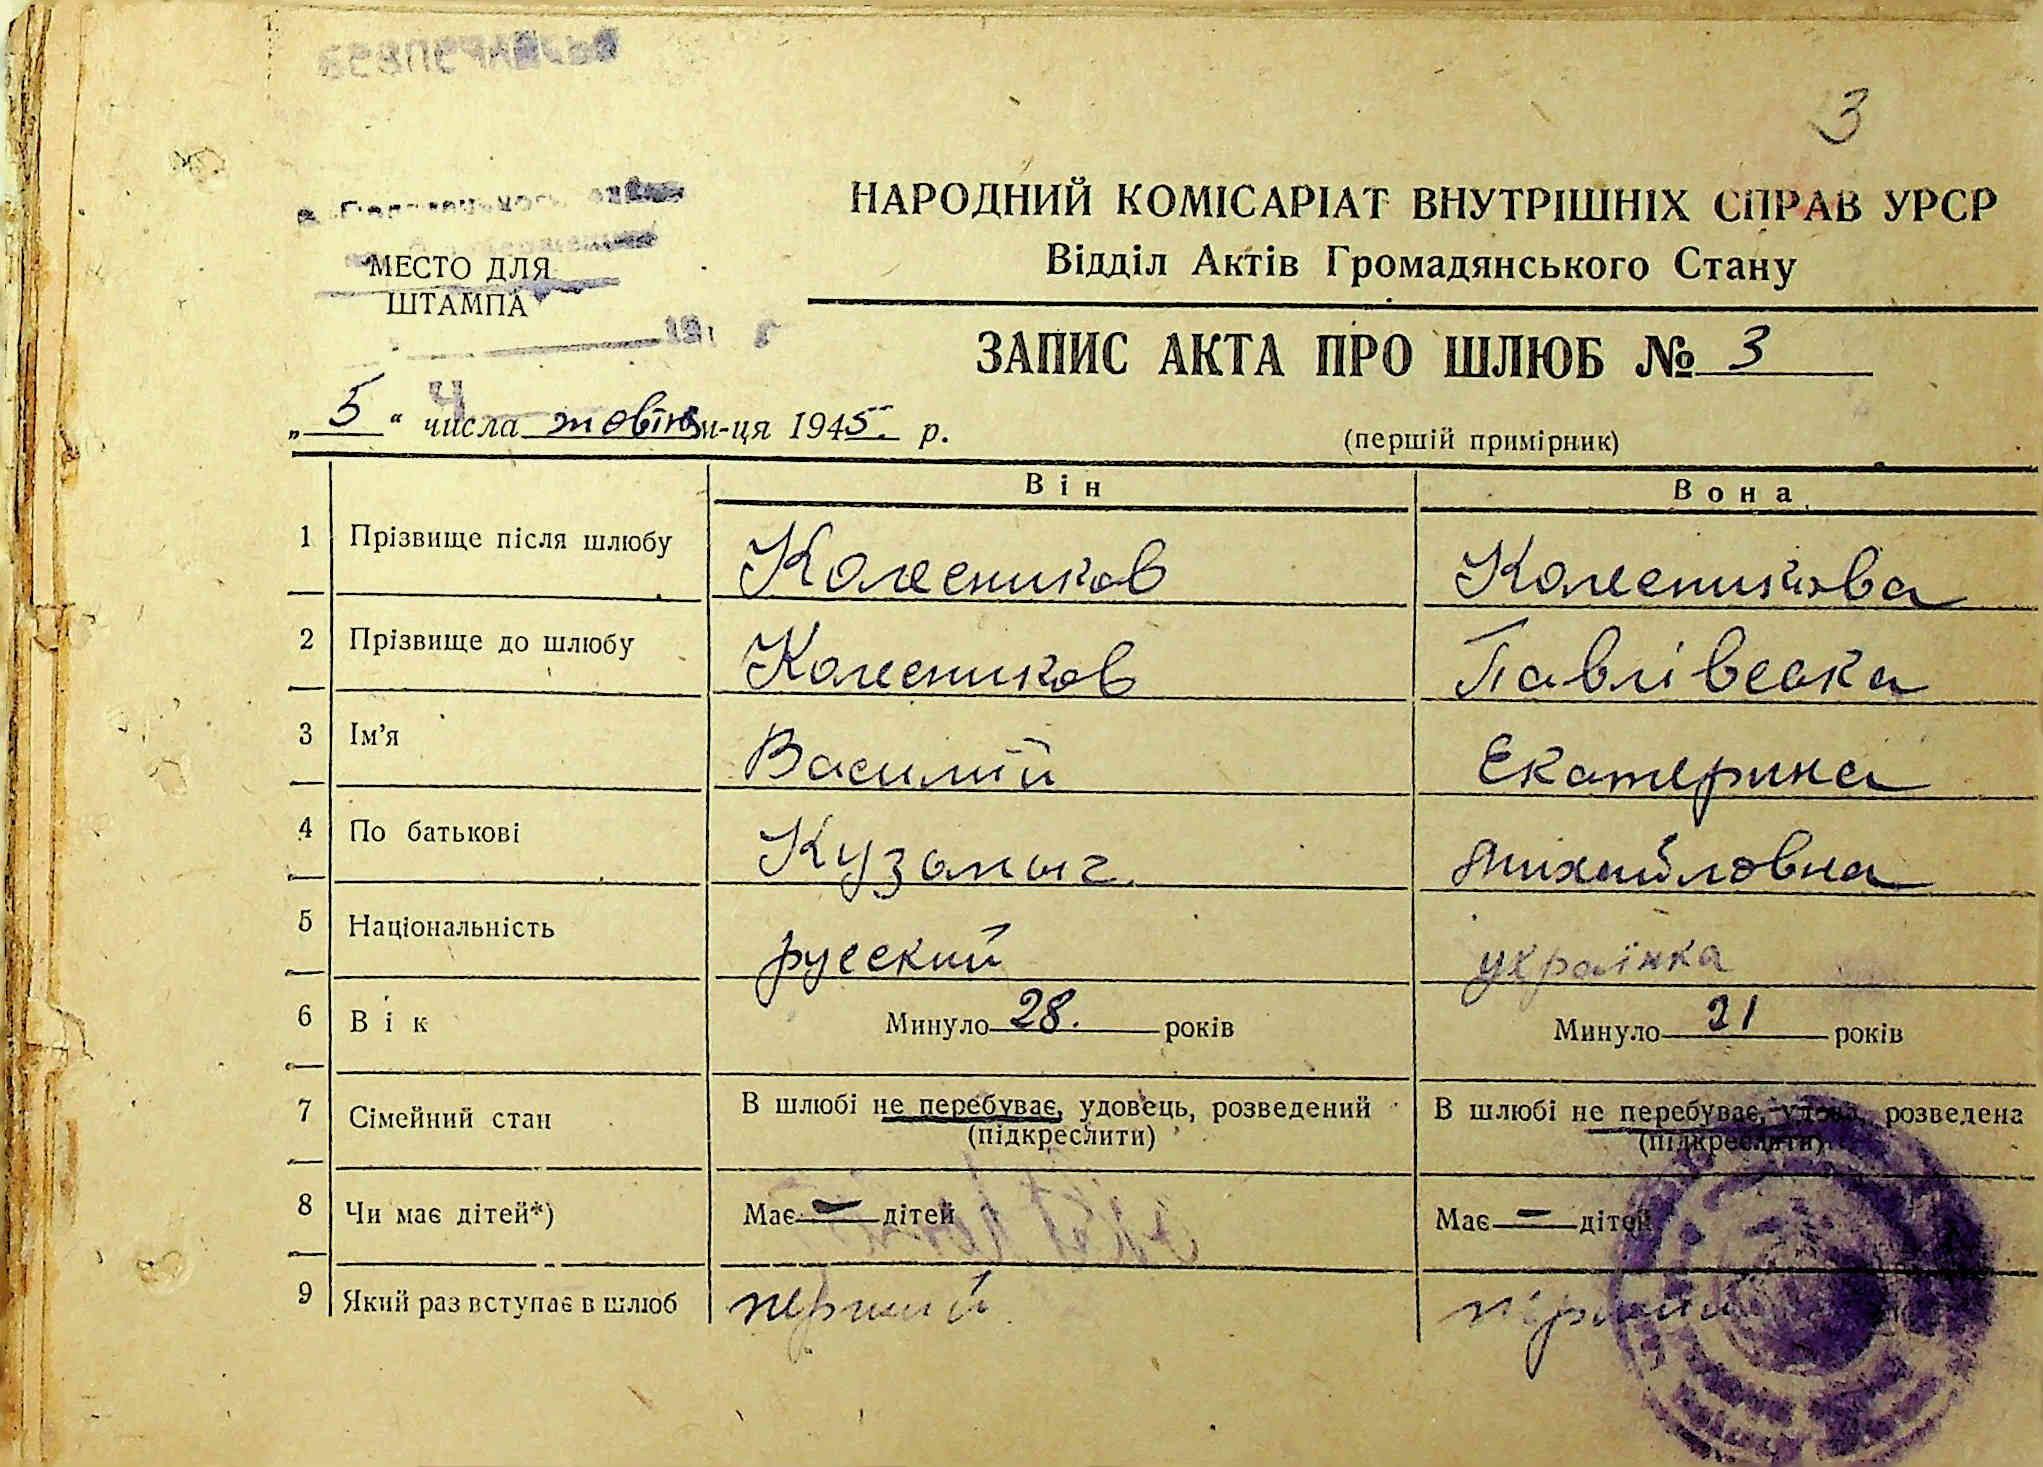 3
НАРОДНИЙ КОМІСАРІАТ ВНУТРІШНІХ СПРАВ УРСР
Відділ Актів Громадянського Стану
МЕСТО ДЛЯ
ШТАМПА
ЗАПИС АКТА ПРО ШЛЮБ № 3
„5“ числа жовтня м-ця 1945. р.
(першій примірник)
Він Вона
1 Прізвище після шлюбу Колесников Колесникова
2 Прізвище до шлюбу Колесников
3 Ім'я Василий Екатерина
4 По батькові Кузьмыч Михайловна
5 Національність русский українка
6 Вік Минуло 28. років Минуло 21 років
7 Сімейний стан В шлюбі не перебуває, удовець, розведений В шлюбі не перебуває, удова, розведена
(підкреслити) (підкреслити)
8 Чи має дітей*) Має — дітей Має — дітей
9 Який раз вступає в шлюб перший перший